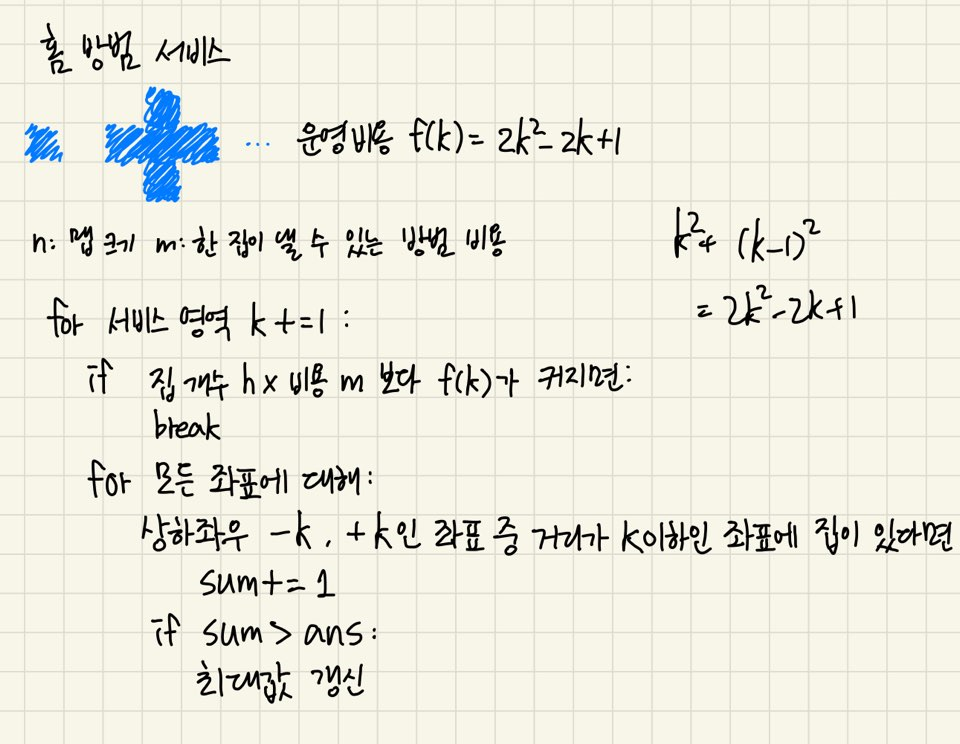 홈 방범 서비스
... 운영비용 f(k) = 2k²-2k+1
n: 맵 크기 m: 한 집이 낼 수 있는 방범 비용
k²+ (k-1)²
= 2k²-2k+1
for 서비스 영역 k+=1:
if 집 개수 h x 비용 m 보다 f(k)가 커지면:
break
for 모든 좌표에 대해:
상하좌우 -k, +k인 좌표 중 거리가 k이하인 좌표에 집이 있다면
sum+=1
if sum > ans:
최대값 갱신